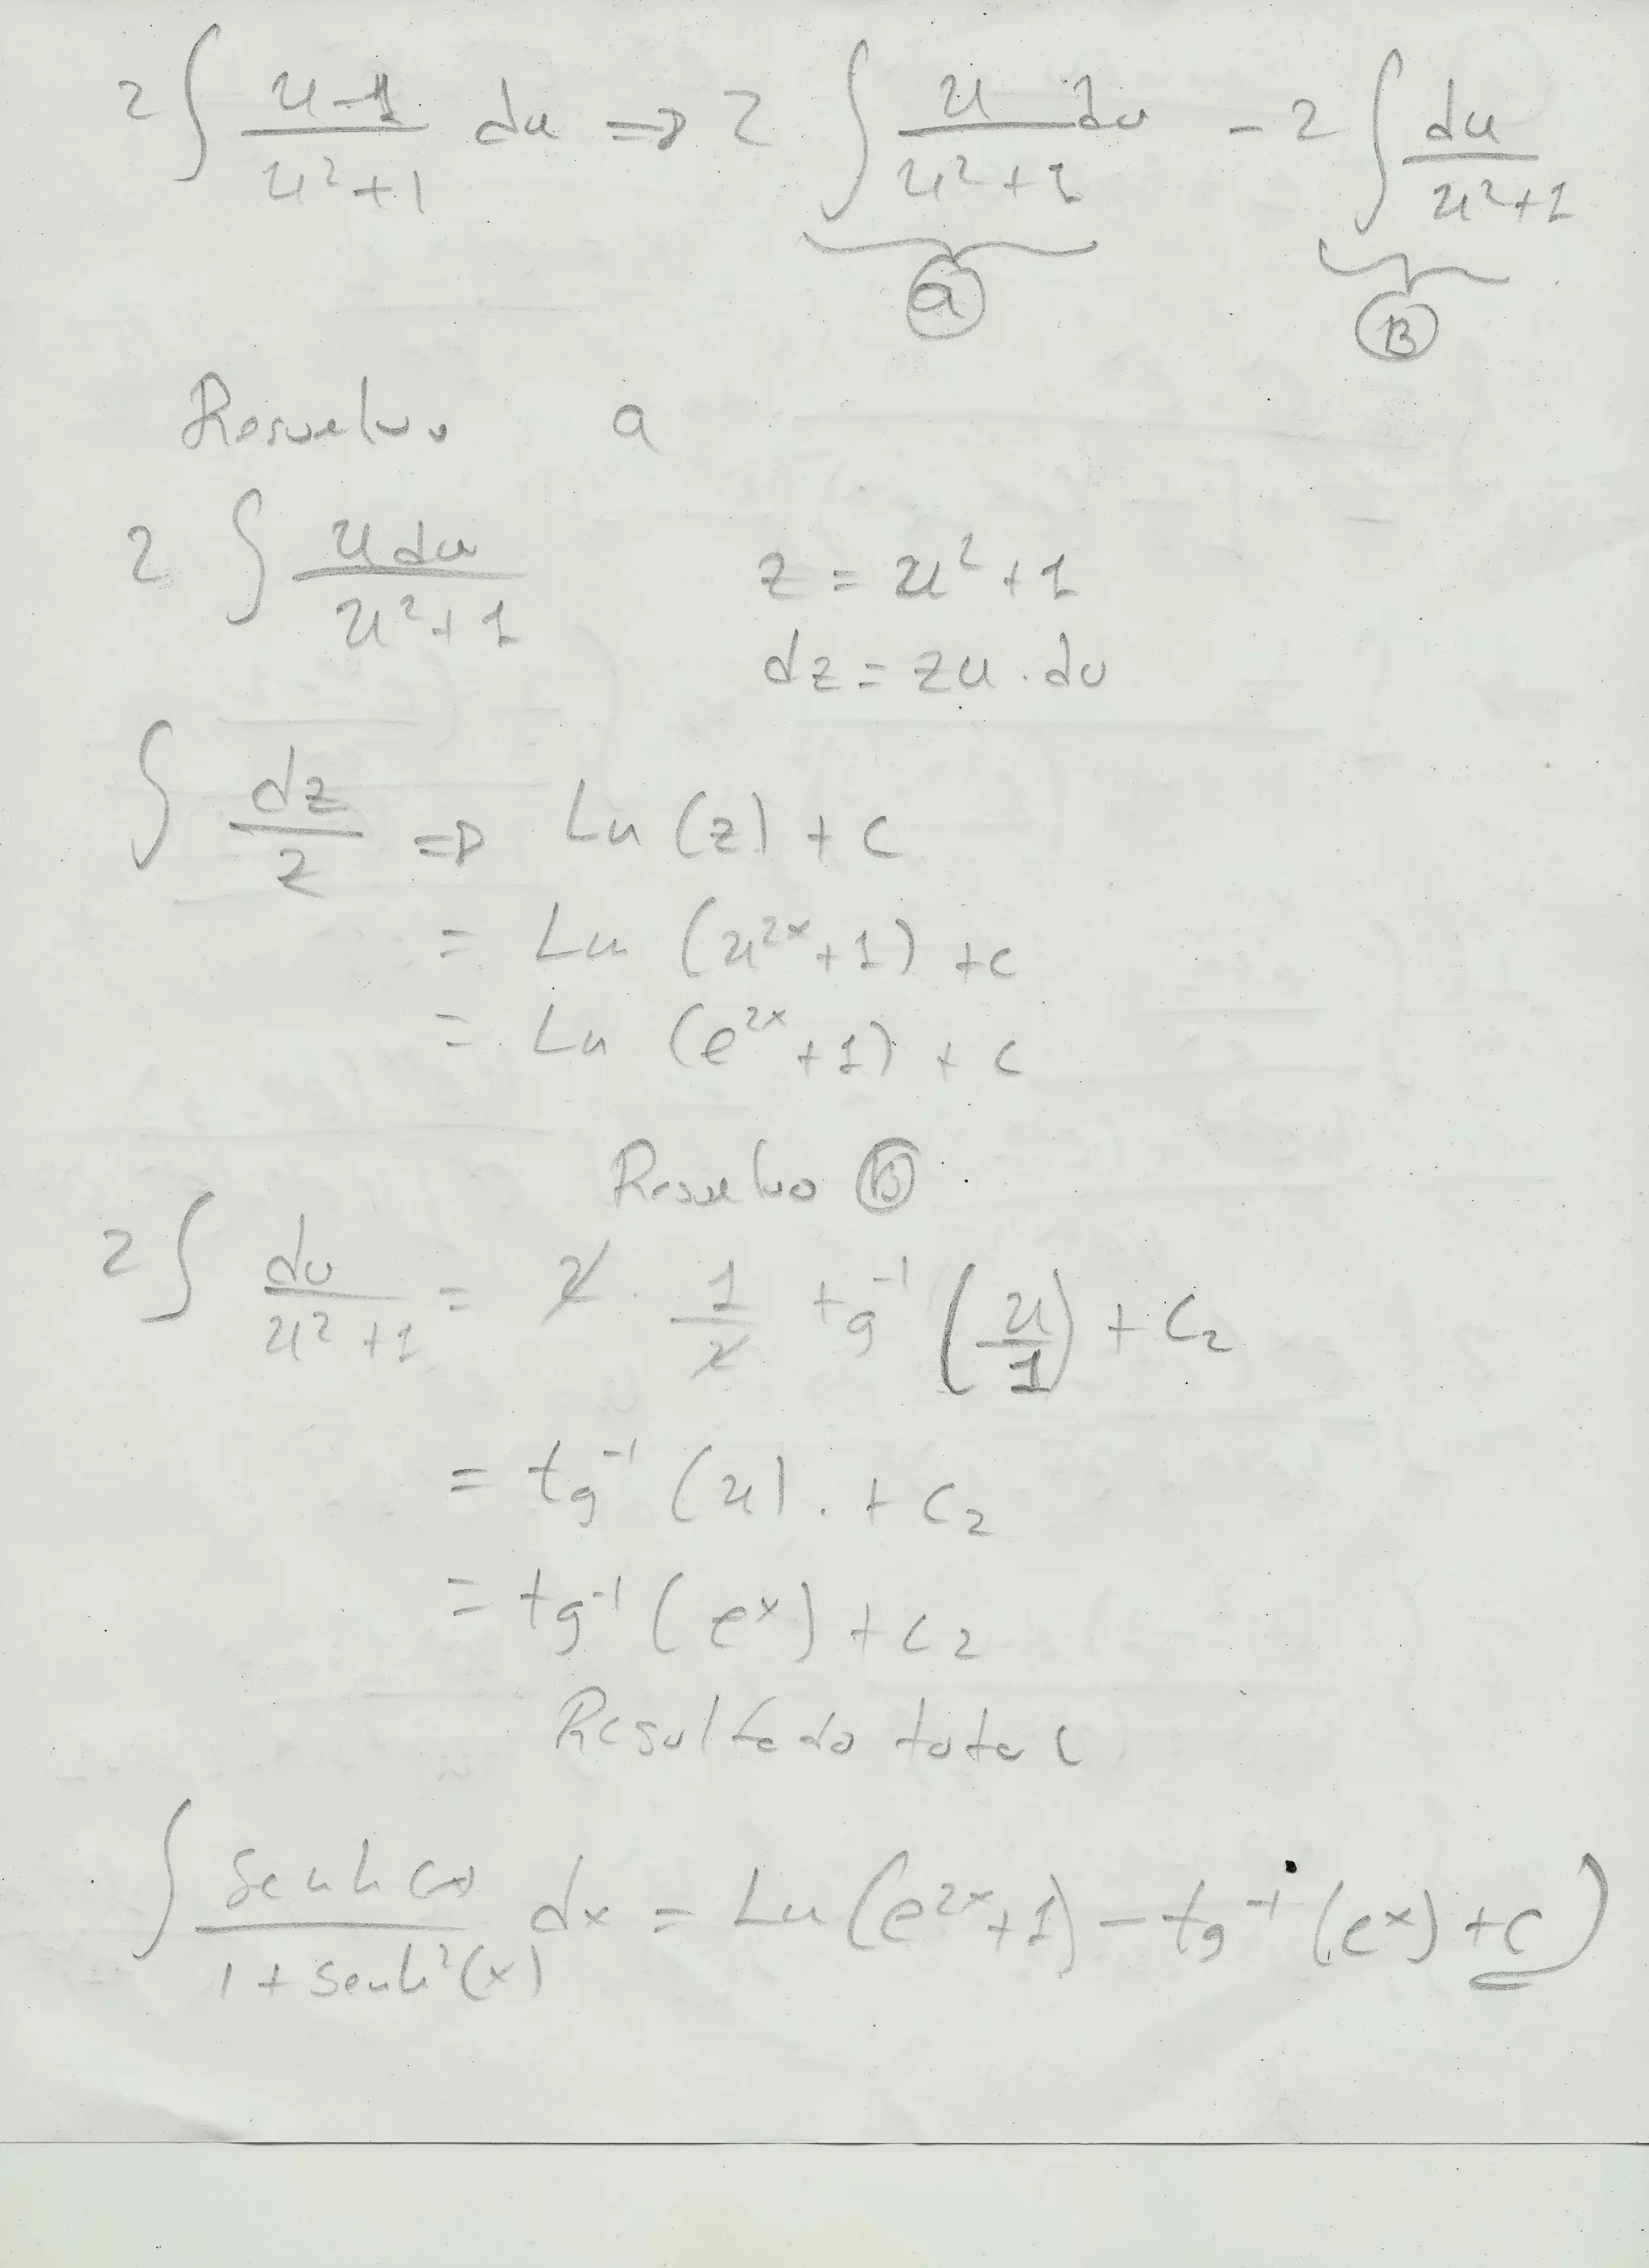 2 ∫ (u-1)/(u²+1) du ⇒ 2 ∫ u/(u²+1) du - 2 ∫ du/(u²+1)
a B
Resuelvo a
2 ∫ u du/(u²+1) z = u²+1
dz = 2u . du
∫ dz/z ⇒ Ln (z) + c
= Ln (u²ˣ+1) + c
= Ln (e²ˣ+1) + c
Resuelvo b
2 ∫ du/(u²+1) = 2 . 1/2 tg⁻¹ (u/1) + C₂
= tg⁻¹ (u) . + C₂
= tg⁻¹ (eˣ) + C₂
Resultado total
∫ Senh (x)/(1 + senh²(x)) dx = Ln (e²ˣ+1) - tg⁻¹ (eˣ) + c)